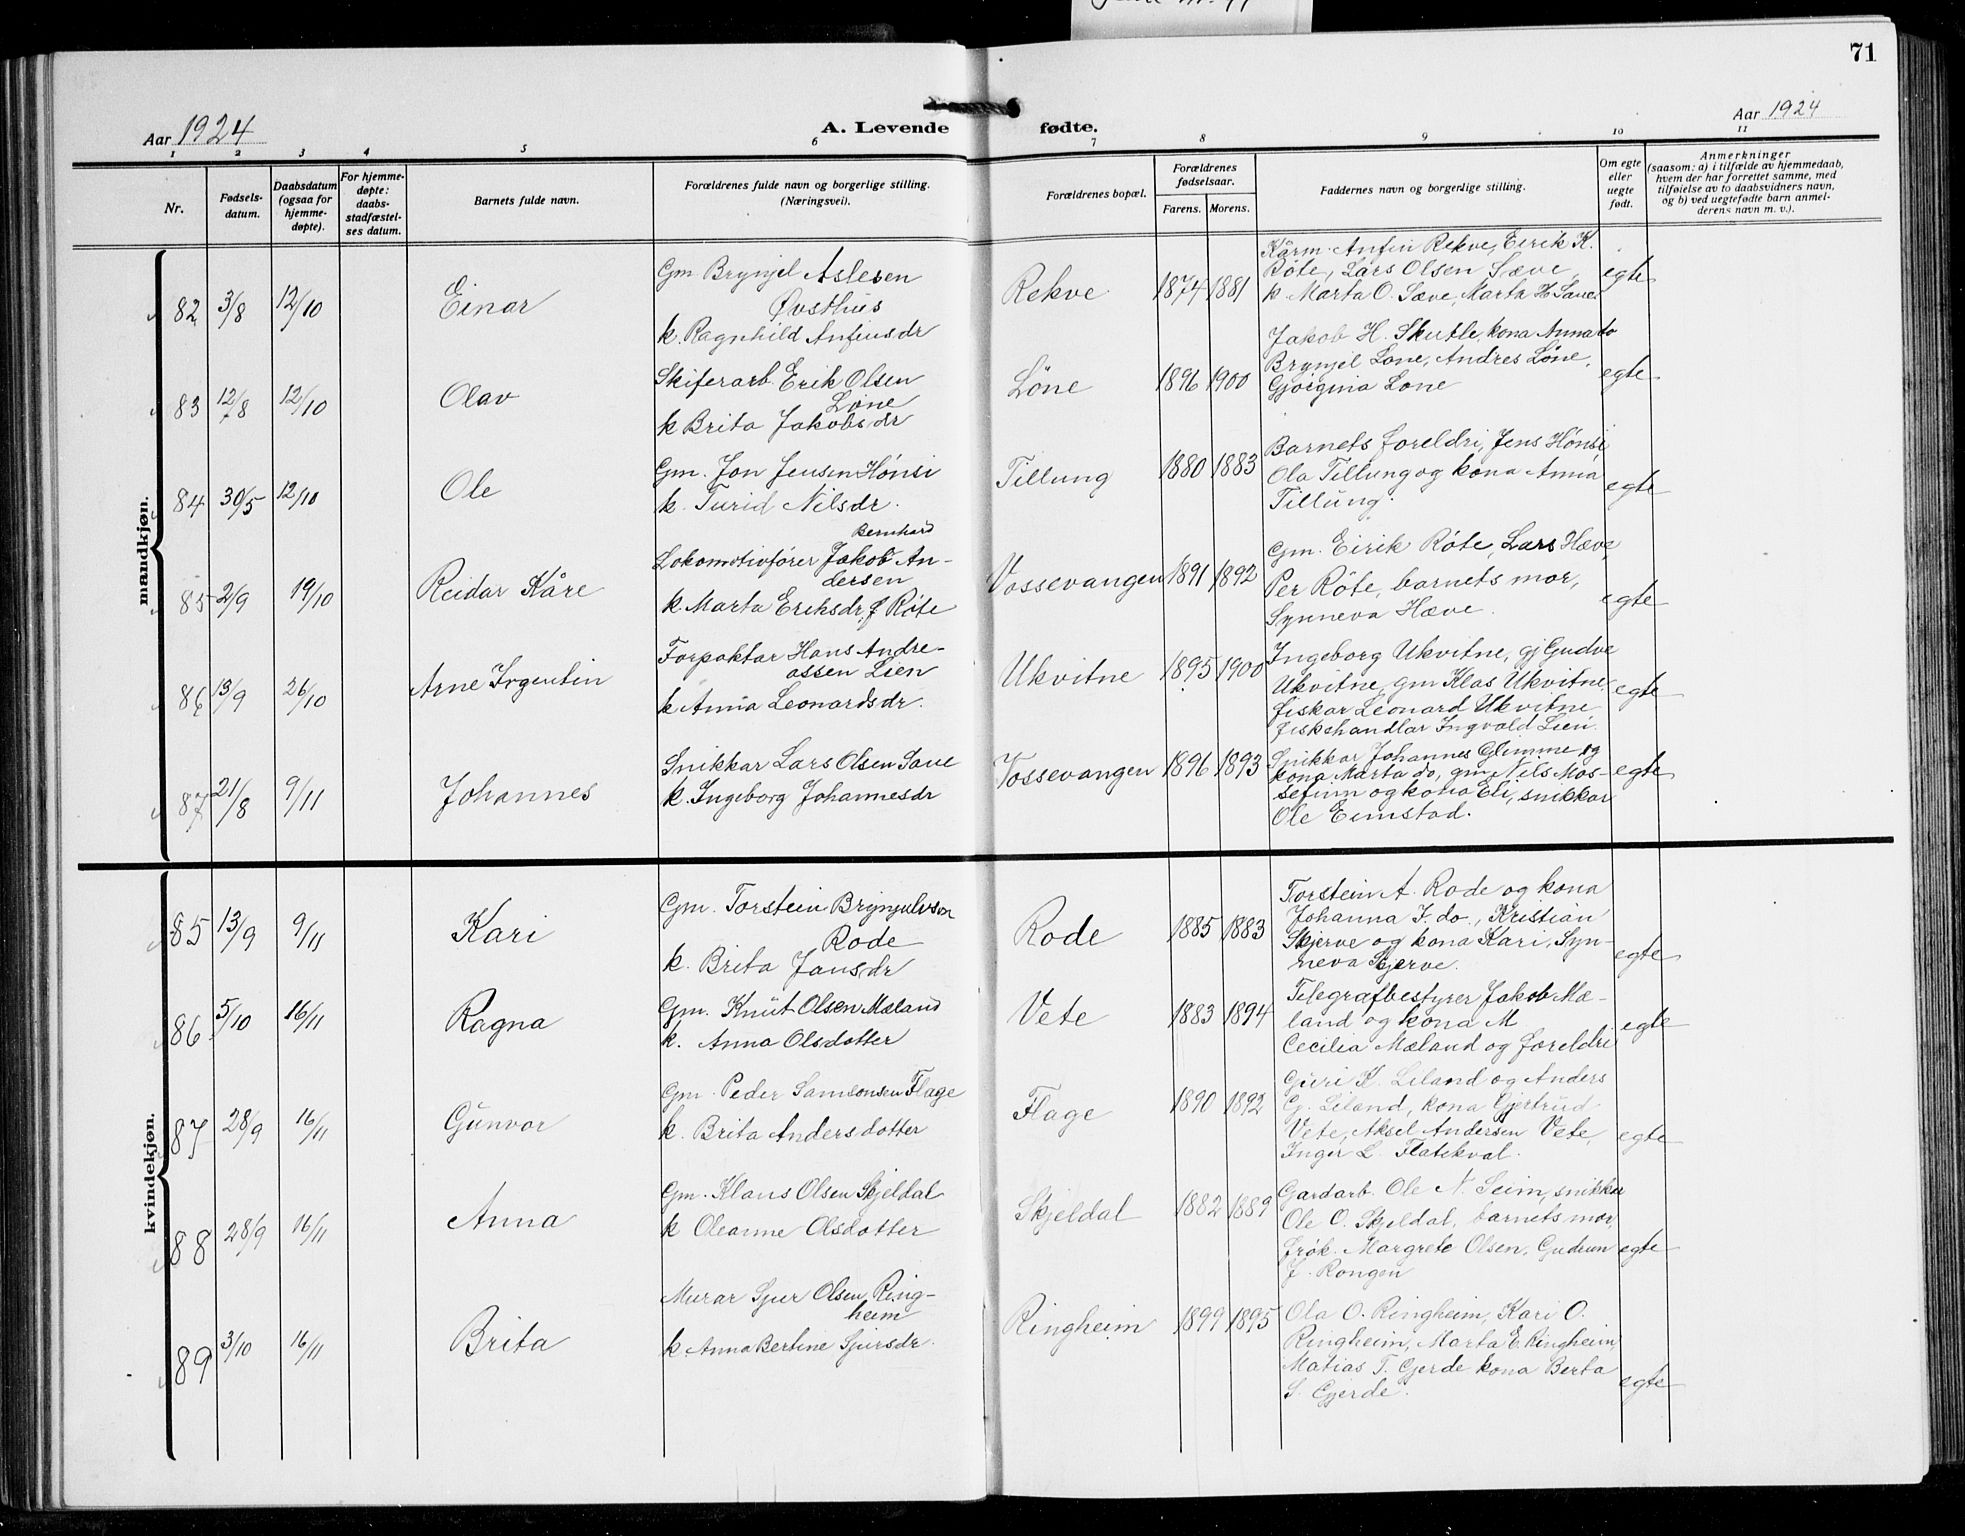 71
Aar 1924
A. Levende
fødte.
Aar 1924
1 2 3 4 5 6 7 8 9 10 11
Nr.
Fødsels-
datum.
Daabsdatum
(ogsaa for
hjemme-
døpte).
For hjemme-
døpte:
daabs-
stadfæstel-
ses datum.
Barnets fulde navn.
Forældrenes fulde navn og borgerlige stilling.
(Næringsvei).
Forældrenes bopæl.
Forældrenes
fødselsaar.
Farens. Morens.
Faddernes navn og borgerlige stilling.
Om egte
eller
uegte
født.
Anmerkninger
(saasom: a) i tilfælde av hjemmedaab,
hvem der har forrettet samme, med
tilføielse av to daabsvidners navn,
og b) ved uegtefødte barn anmel-
derens navn m. v.).
mandkjøn.
82 3/8 12/10 Einar
Gm Brynjel Aslesen
Øvsthus
k. Ragnhild Anfinsdr
Rekve 1874 1881
Kårm. Anfin Rekve, Eirik K.
Røte, Lars Olsen Sæve,
k. Marta O. Sæve, Marta H Sæve
egte
83 12/8 12/10 Olav
Skiferarb. Erik Olsen
Løne
k Brita Jakobsdr
Løne 1896 1900
Jakob H. Skutle, kona Anna do
Brynjel Løne, Andres Løne,
Gjørgina Løne
egte
84 30/5 12/10 Ole
Gm. Jon Jensen Hønsi
k. Turid Nilsdr.
Tillung 1880 1883
Barnets foreldri, Jens Hønsi
Ola Tillung og kona Anna
Tillung.
egte
85 2/9 19/10 Reidar Kåre
Bernhard
Lokomotivfører Jakob An-
dersen
k. Marta Eriksdr, f Røte
Vossevangen 1891 1892
Gm. Eirik Røte, Lars Hæve,
Per Røte, barnets mor,
Synneva Hæve.
egte
86 13/9 26/10 Arne Irgentin
Forpaktar Hans Andre-
assen Lien
k Anna Leonardsdr.
Ukvitne 1895 1900
Ingeborg Ukvitne, gj Gudve
Ukvitne, gm Klas Ukvitne,
fiskar Leonard Ukvitne
fiskehandlar Ingvald Lien.
egte
87 21/8 9/11 Johannes
Snikkar Lars Olsen Sæve
k. Ingeborg Johannesdr
Vossevangen 1896 1893
Snikkar Johannes Glimme og
kona Marta do, gm Nils Mos-
sefinn og kona Eli, snikkar
Ole Eimstad.
egte
kvindekjøn.
85 13/9 9/11 Kari
Gm. Torstein Brynjulvsen
Rode
k. Brita Jansdr
Rode 1885 1883
Torstein A. Rode og kona
Johanna J. do., Kristian
Skjerve og kona Kari, Syn-
neva Skjerve.
egte
86 5/10 16/11 Ragna
Gm. Knut Olsen Mæland
k. Anna Olsdotter
Vete 1883 1894
Telegrafbestyrer Jakob Mæ-
land og kona M
Cecilia Mæland og foreldri
egte
87 28/9 16/11 Gunvor
Gm. Peder Samsonsen Flage
k. Brita Andersdotter
Flage 1890 1892
Guri K. Liland og Anders
G. Liland, kona Gjertrud
Vete, Aksel Andersen Vete,
Inger L. Flatekval.
egte
88 28/9 16/11 Anna
Gm. Klaus Olsen Skjeldal
k Oleanne Olsdotter
Skjeldal 1882 1889
Gardarb. Ole N. Seim, snikkar
Ole O. Skjeldal, barnets mor,
frøk. Margrete Olsen, Gudrun
J. Rongen
egte
89 3/10 16/11 Brita
Murar Sjur Olsen Ring-
heim
k Anna Bertine Sjursdr.
Ringheim 1899 1895
Ola O. Ringheim, Kari O.
Ringheim, Marta E. Ringheim,
Matias T. Gjerde kona Berta
S. Gjerde.
egte